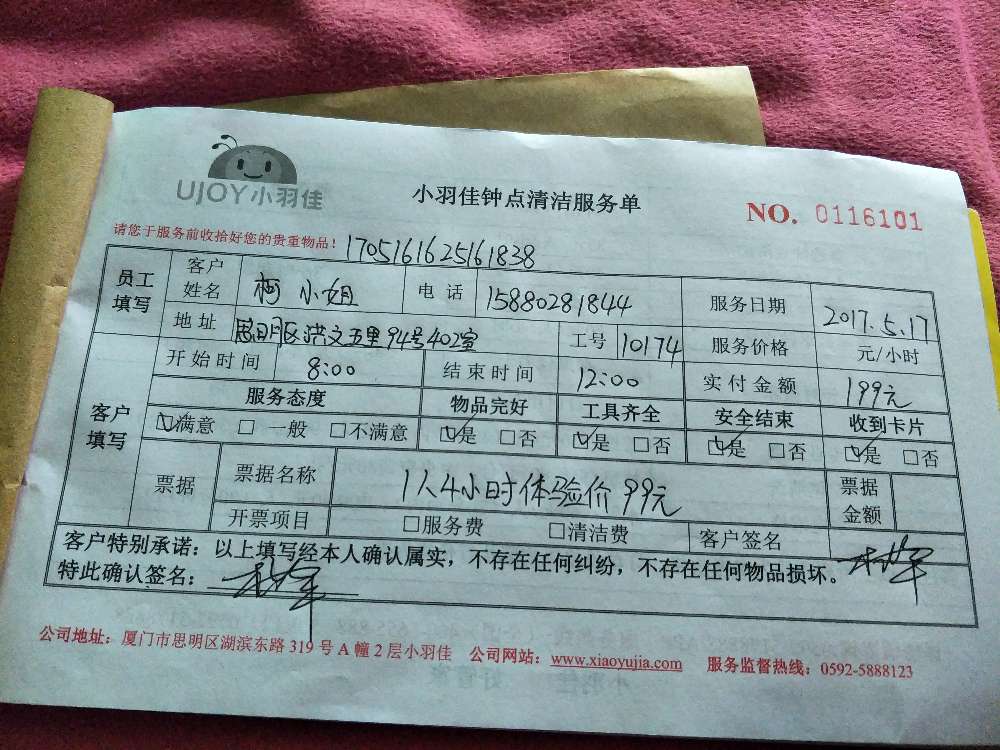 UJOY小羽佳
小羽佳钟点清洁服务单
NO. 0116101
请您于服务前收拾好您的贵重物品！ 1705161625161838
员工填写 客户姓名 柯小姐 电话 15880281844 服务日期 2017.5.17
地址 思明区洪文五里94号402室 工号 10174 服务价格 元/小时
客户填写 开始时间 8:00 结束时间 12:00 实付金额 199元
服务态度 物品完好 工具齐全 安全结束 收到卡片
☑满意 □一般 □不满意 ☑是 □否 ☑是 □否 ☑是 □否 ☑是 □否
票据 票据名称 1人4小时体验价99元 票据金额
开票项目 □服务费 □清洁费 客户签名
客户特别承诺：以上填写经本人确认属实，不存在任何纠纷，不存在任何物品损坏。
特此确认签名：
公司地址：厦门市思明区湖滨东路319号A幢2层小羽佳 公司网站：www.xiaoyujia.com 服务监督热线：0592-5888123